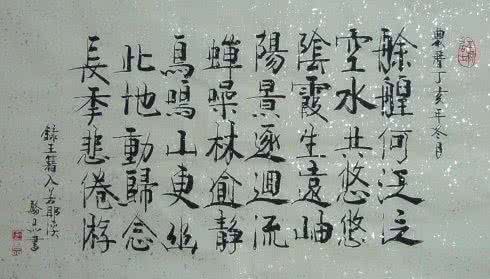 農曆丁亥年冬月
艅艎何泛泛
空水共悠悠
陰霞生遠岫
陽景逐迴流
蟬噪林逾靜
鳥鳴山更幽
此地動歸念
長秊悲倦游
錄王籍入若耶溪
書